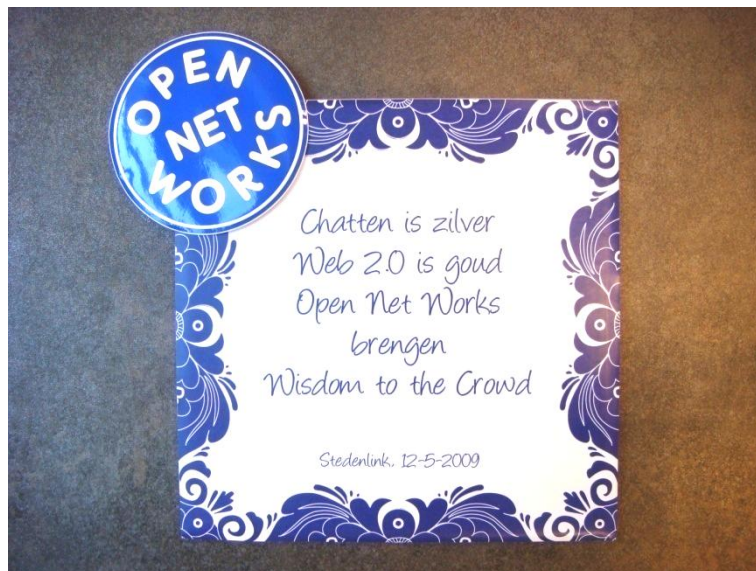 OPEN
NET
WORKS
Chatten is zilver
Web 2.0 is goud
Open Net Works
brengen
Wisdom to the Crowd
Stedenlink, 12-5-2009